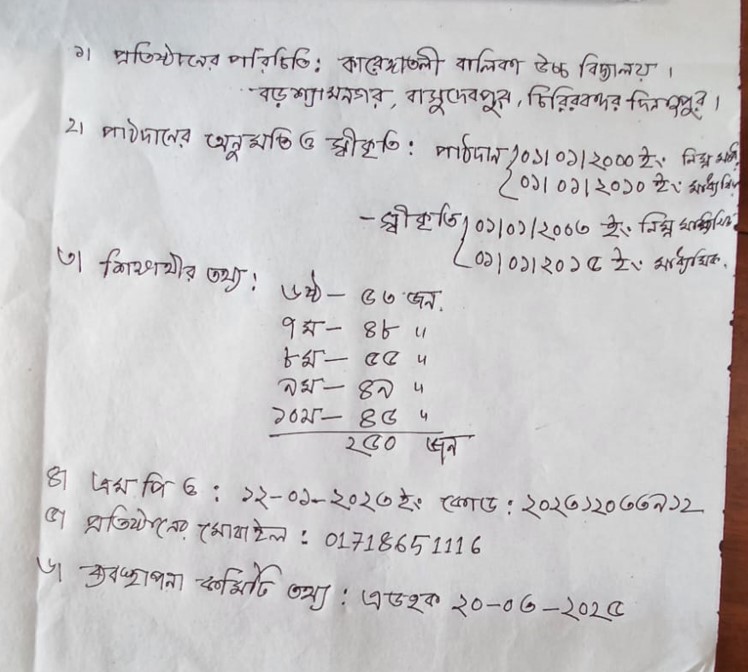 ১। প্রতিষ্ঠানের পরিচিতি: কারেঙ্গাতলী বালিকা উচ্চ বিদ্যালয়।
বড়শ্যামনগর, বাসুদেবপুর, চিরিরবন্দর দিনাজপুর।
২। পাঠদানের অনুমতি ও স্বীকৃতি: পাঠদান ০১/০১/২০০০ ইং নিম্ন
০১/০১/২০১০ ইং
- স্বীকৃতি ০১/০১/২০০৩ ইং নিম্ন মাধ্যমিক
০১/০১/২০১৫ ইং মাধ্যমিক.
৩। শিক্ষার্থীর তথ্য:
৬ষ্ঠ – ৫৩ জন.
৭ম – ৪৮ "
৮ম – ৫৫ "
৯ম – ৪৯ "
১০ম – ৪৫ "
২৫০ জন
৪। এম পি ও: ১২-০১-২০২৩ ইং কোড: ২০২৩১২০৩৩৯১২
৫। প্রতিষ্ঠানের মোবাইল: 01718651116
৬। ব্যবস্থাপনা কমিটি তথ্য: এডহক ২০-০৩-২০২৫